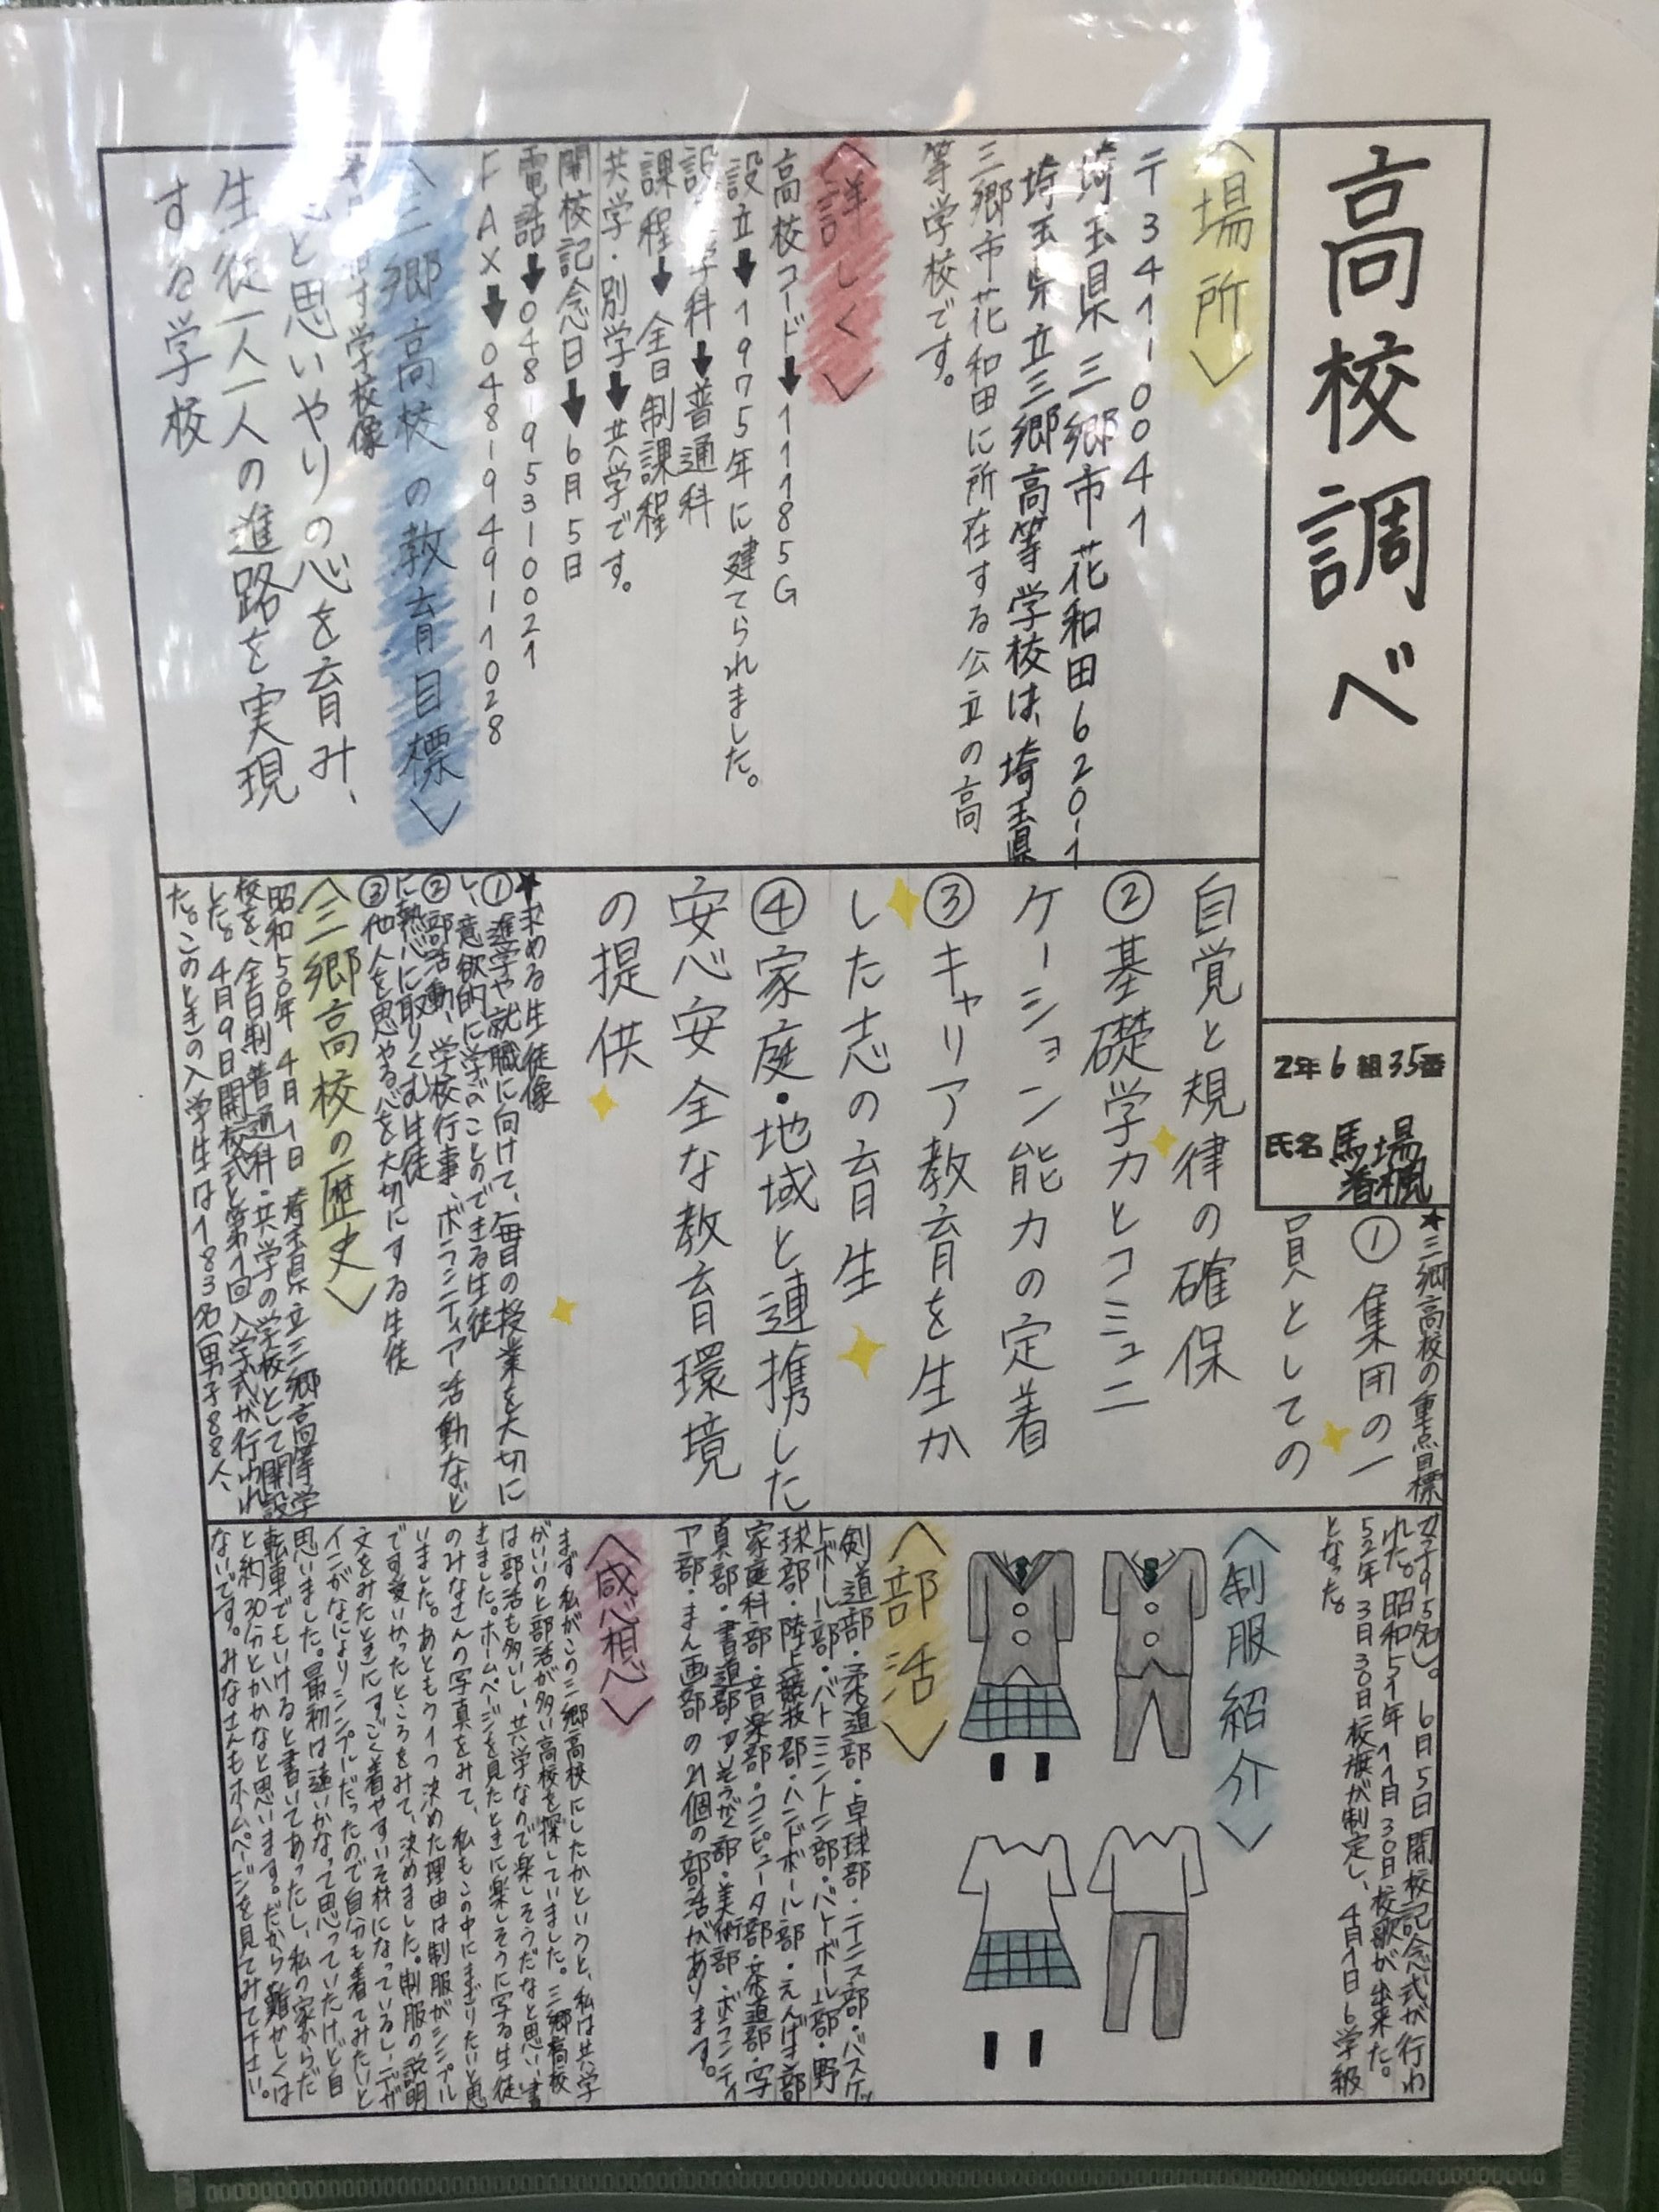 高校調べ
2年6組35番
氏名 馬場
〈場所〉
〒341-0041
埼玉県三郷市花和田620-1
埼玉県立三郷高等学校は、埼玉県
三郷市花和田に所在する公立の高
等学校です。
〈詳しく〉
高校コード➡11185G
設立➡1975年に建てられました。
学科➡普通科
課程➡全日制課程
共学・別学➡共学です。
開校記念日➡6月5日
電話➡048-953-0021
FAX➡048-949-1028
〈三郷高校の教育目標〉
す学校像
と思いやりの心を育み、
生徒一人一人の進路を実現
する学校
★三郷高校の重点目標
① 集団の一
員としての
自覚と規律の確保
②基礎学力とコミュニ
ケーション能力の定着
③キャリア教育を生か
した志の育生
④家庭・地域と連携した
安心安全な教育環境
の提供
★求める生徒像
①進学や就職に向けて、毎日の授業を大切に
し、意欲的に学ぶことのできる生徒
②部活動、学校行事、ボランティア活動など
に熱心に取りくむ生徒
③他人を思やる心を大切にする生徒
〈三郷高校の歴史〉
昭和50年4月1日 埼玉県立三郷高等学
校を、全日制普通科・共学の学校として開設
した。4月9日開校式と第1回入学式が行われ
た。このときの入学生は183名(男子88人、
女子95名)。6月5日開校記念式が行わ
れた。昭和51年11月30日校歌が出来た。
52年3月30日校旗が制定し、4月1日6学級
となった。
〈制服紹介〉
〈部活〉
剣道部・柔道部・卓球部・テニス部・バスケッ
トボール部・バトミントン部・バレーボール部・野
球部・陸上競技部・ハンドボール部・えんげき部
家庭科部・音楽部・コンピュータ部・茶道部・写
真部・書道部・すいそうがく部・美術部・ボランティ
ア部・まん画部の21個の部活があります。
〈感想〉
まず私がこの三郷高校にしたかというと、私は共学
がいいのと部活が多い高校を探していました。三郷高校
は部活も多いし、共学なので楽しそうだなと思い、書
きました。ホームページを見たときに楽しそうに写る生徒
のみなさんの写真をみて、私もこの中にまざりたいと思
いました。あともう1つ決めた理由は制服がシンプル
です愛いかったところをみて、決めました。制服の説明
文をみたときにすごく着やすいそ材になっているし、デザ
インがなによりシンプルだったので自分も着てみたいと
思いました。最初は遠いかなって思っていたけど自
転車でもいけると書いてあったし、私の家からだ
と約30分とかかなと思います。だから難かしくは
ないです。みなさんもホームページを見てみて下さい。